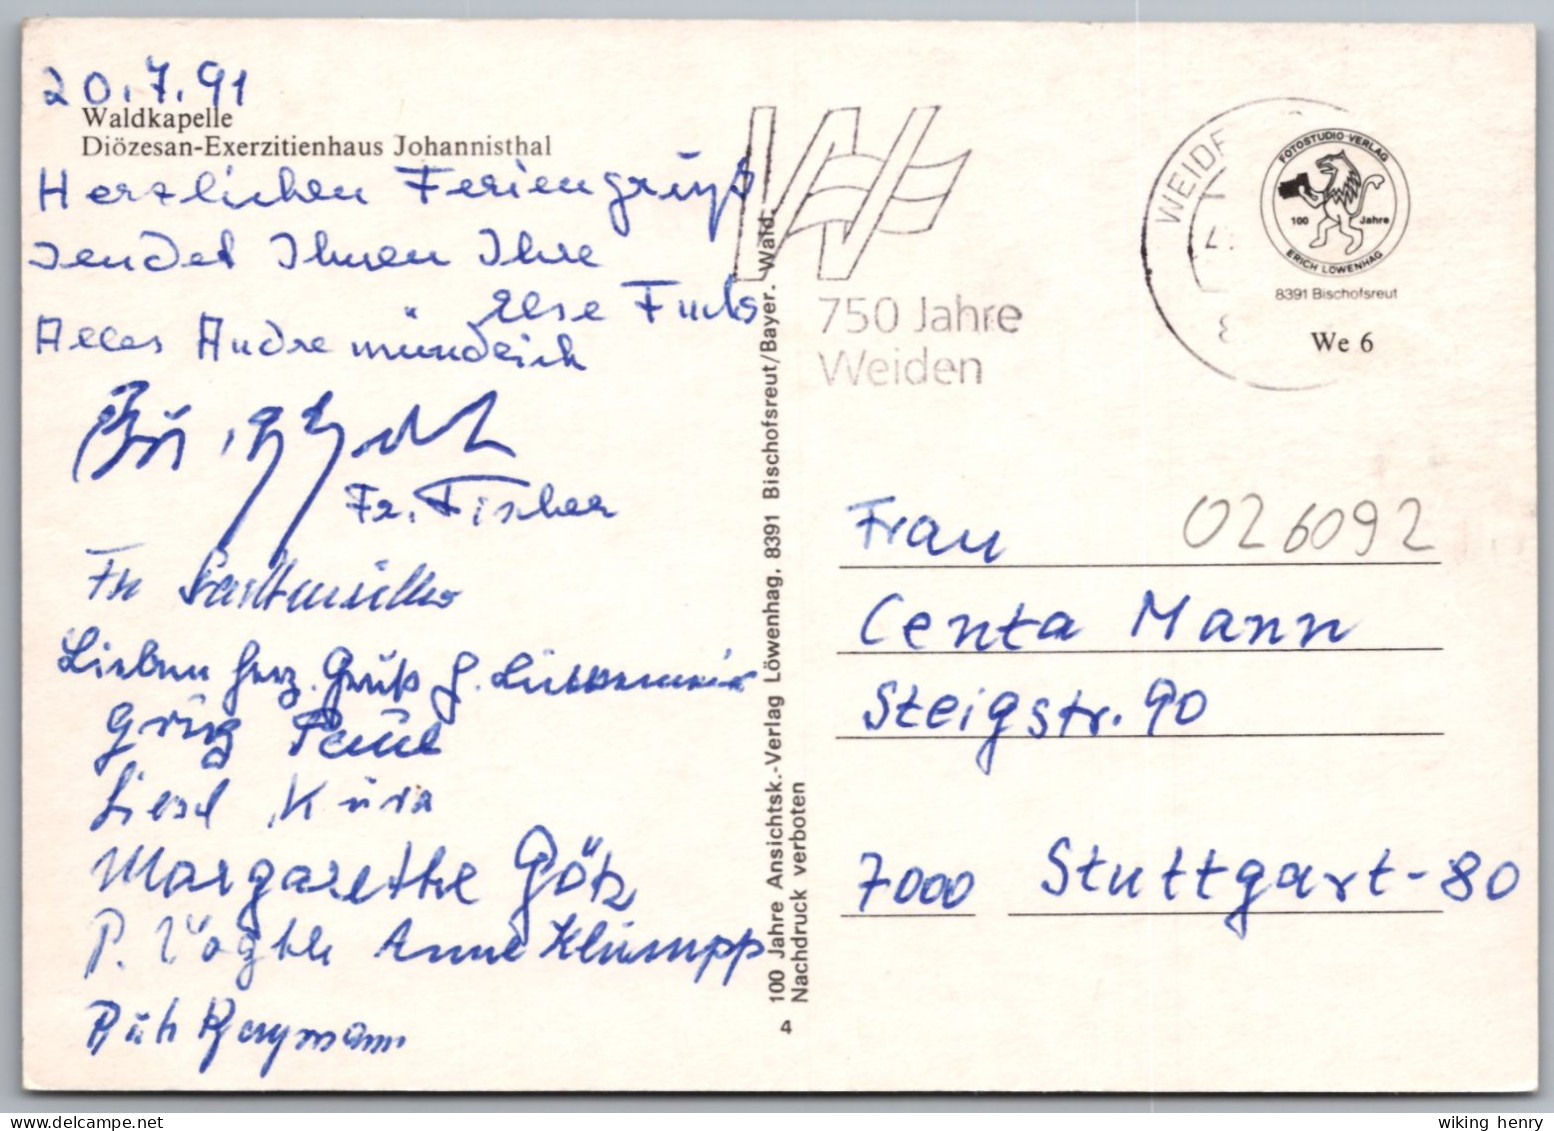 20.7.91
Waldkapelle
Diözesan-Exerzitienhaus Johannisthal
Herzlichen Feriengruß
sendet Ihnen Ihre
Else Fuchs
Alles Andre mündlich
Fr. Fischer
Fr
Lieben herz. Gruß G.
Paul
Liesl
Margarethe Götz
P. Vögtle Anne Klumpp
Ruth Bergmann
100 Jahre Ansichtsk.-Verlag Löwenhag, 8391 Bischofsreut/Bayer. Wald.
Nachdruck verboten
4
750 Jahre
Weiden
WEIDE
FOTOSTUDIO VERLAG
100 Jahre
ERICH LÖWENHAG
8391 Bischofsreut
We 6
026092
Frau
Centa Mann
Steigstr. 90
7000 Stuttgart-80
wiking henry